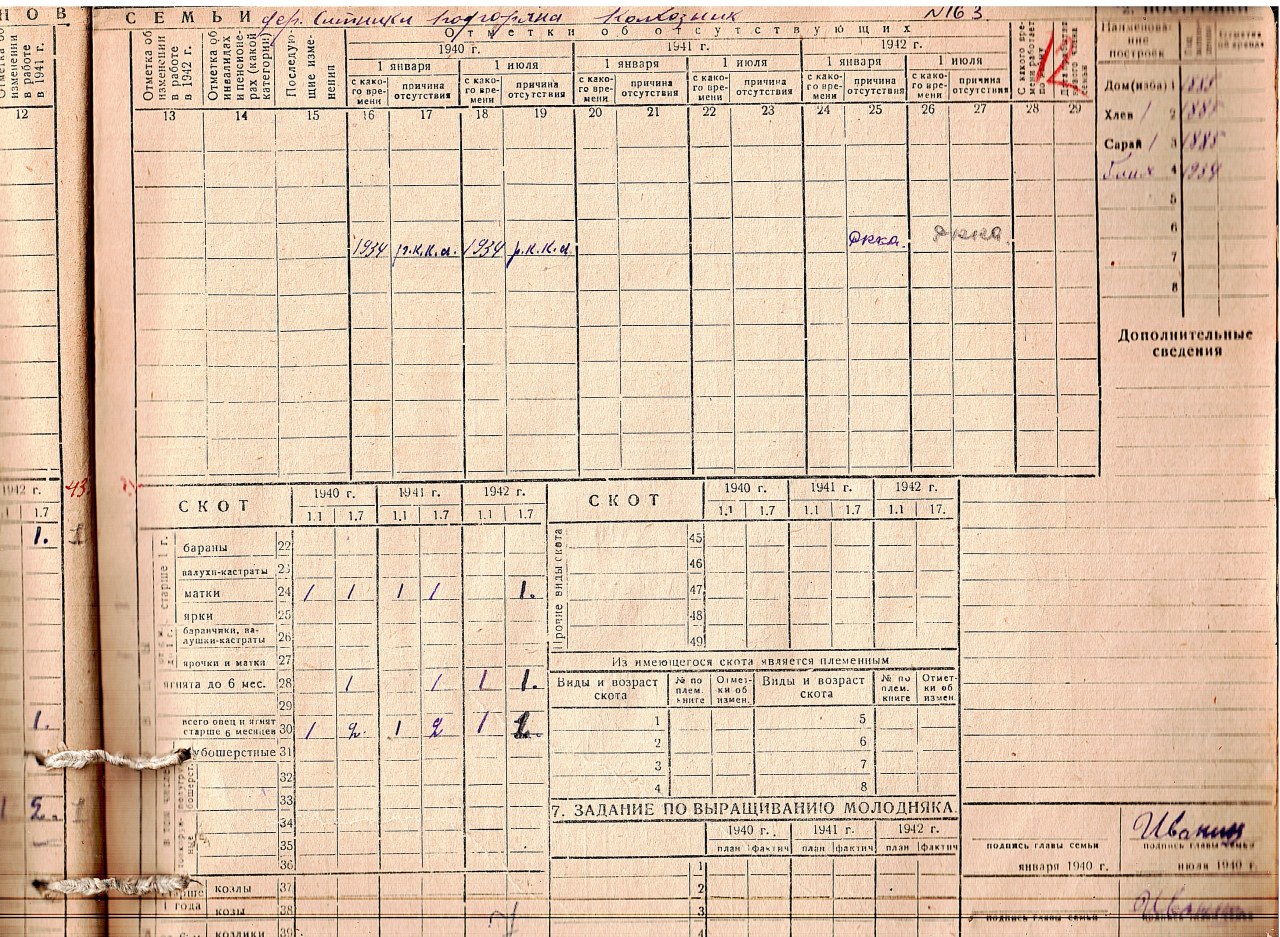 Н О В
С Е М Ь И дер. Ситники Колхозник №163
О т м е т к и о б о т с у т с т в у ю щ и х
1940 г. 1941 г. 1942 г.
1 января 1 июля 1 января 1 июля 1 января 1 июля
изменении в работе в 1941 г.
Отметка об изменении в работе в 1942 г.
Отметка об инвалидах и пенсионерах (какой категории)
Последующие изменения
с како-го вре-мени причина отсутствия с како-го вре-мени причина отсутствия с како-го вре-мени причина отсутствия с како-го вре-мени причина отсутствия с како-го вре-мени причина отсутствия с како-го вре-мени причина отсутствия
12 13 14 15 16 17 18 19 20 21 22 23 24 25 26 27 28 29
1934 р.к.к.а. 1934 р.к.к.а. ркка. ркка.
Наименова-ние построек
Дом(изба) 1 1885
Хлев 1 2 1885
Сарай 1 3 1885
4 1934
5
6
7
8
Дополнительные
сведения
1942 г. 43
1.7
1.
1.
2.
С К О Т 1940 г. 1941 г. 1942 г.
1.1 1.7 1.1 1.7 1.1 1.7
старше 1 г.
бараны 22
валухи-кастраты 23
матки 24 1 1 1 1 1.
ярки 25
баранчики, ва-лушки-кастраты 26
ярочки и матка 27
ягнята до 6 мес. 28 1 1 1 1.
29
всего овец и ягнят старше 6 месяцев 30 1 2. 1 2 1
грубошерстные 31
32
33
34
35
36
козлы 37
1 года козы 38
козлики 39
С К О Т 1940 г. 1941 г. 1942 г.
1.1 1.7 1.1 1.7 1.1 17.
Прочие виды скота
45
46
47
48
49
Из имеющегося скота является племенным
Виды и возраст скота № по плем. книге Отмет-ки об измен. Виды и возраст скота № по плем. книге Отмет-ки об измен.
1 5
2 6
3 7
4 8
7. ЗАДАНИЕ ПО ВЫРАЩИВАНИЮ МОЛОДНЯКА.
1940 г. 1941 г. 1942 г.
план фактич план фактич план фактич
1
2
3
4
Иванин
подпись главы семьи подпись главы семьи
января 1940 г. июля 1940 г.
подпись главы семьи